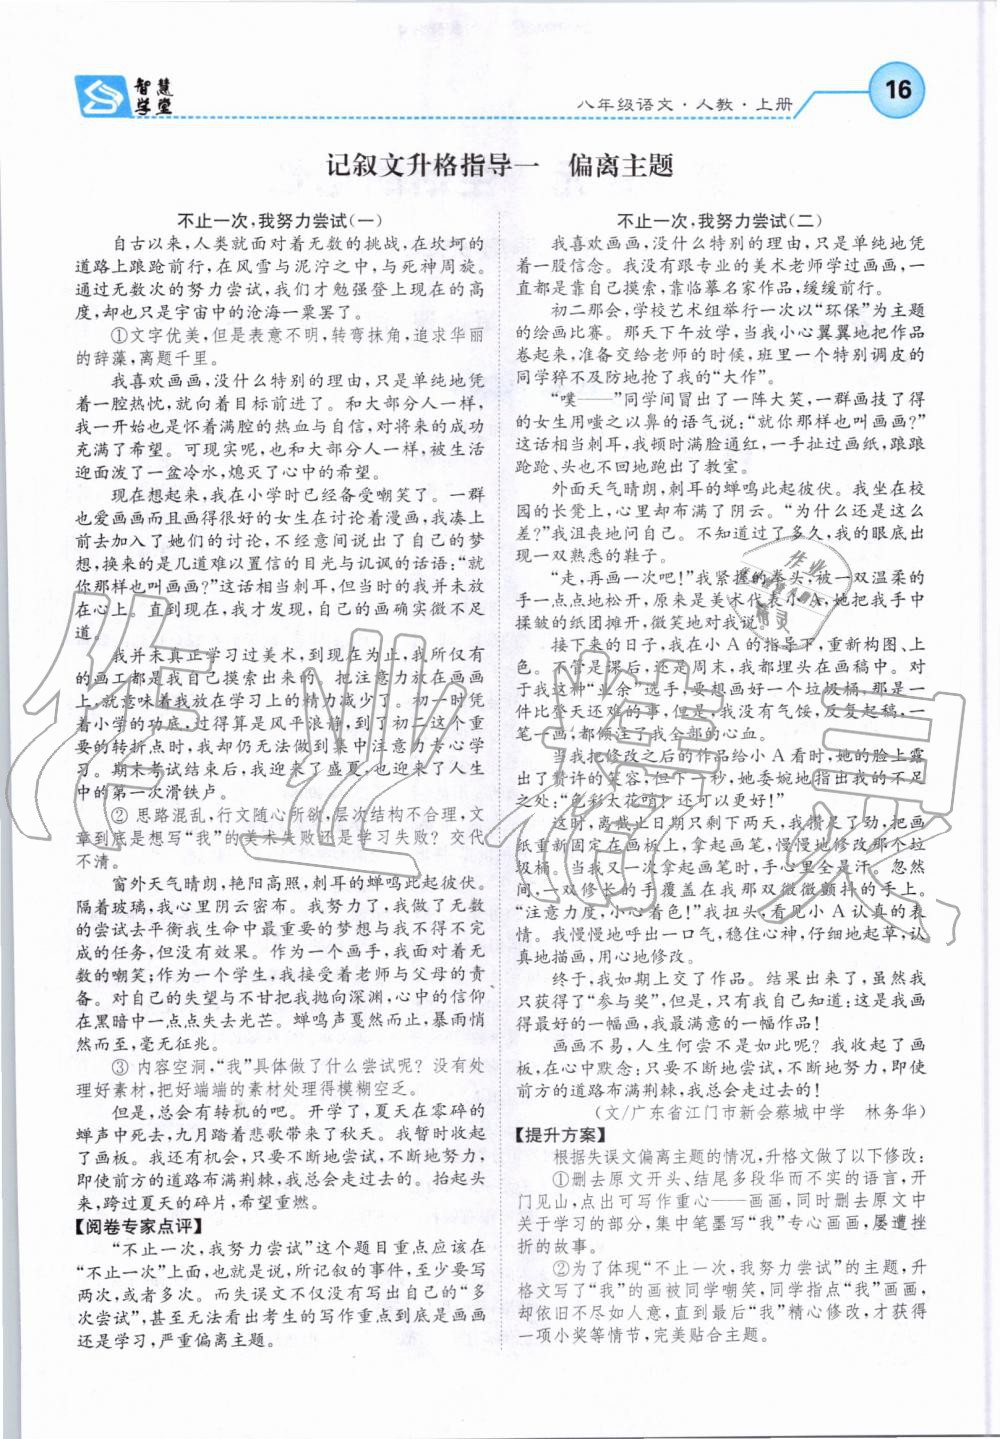 智慧学堂
八年级语文·人教·上册
16
记叙文升格指导一　偏离主题
不止一次,我努力尝试(一)
自古以来,人类就面对着无数的挑战,在坎坷的
道路上踉跄前行,在风雪与泥泞之中,与死神周旋。
通过无数次的努力尝试,我们才勉强登上现在的高
度,却也只是宇宙中的沧海一粟罢了。
①文字优美,但是表意不明,转弯抹角,追求华丽
的辞藻,离题千里。
我喜欢画画,没什么特别的理由,只是单纯地凭
着一腔热忱,就向着目标前进了。和大部分人一样,
我一开始也是怀着满腔的热血与自信,对将来的成功
充满了希望。可现实呢,也和大部分人一样,被生活
迎面泼了一盆冷水,熄灭了心中的希望。
现在想起来,我在小学时已经备受嘲笑了。一群
也爱画画而且画得很好的女生在讨论着漫画,我凑上
前去加入了她们的讨论,不经意间说出了自己的梦
想,换来的是几道难以置信的目光与讥讽的话语:“就
你那样也叫画画?”这话相当刺耳,但当时的我并未放
在心上。直到现在,我才发现,自己的画确实微不足
道。
我并未真正学习过美术,到现在为止,我所仅有
的画工都是我自己摸索出来的。把注意力放在画画
上,就意味着我放在学习上的精力减少了。初一时凭
着小学的功底,过得算是风平浪静,到了初二这个重
要的转折点时,我却仍无法做到集中注意力专心学
习。期末考试结束后,我迎来了盛夏,也迎来了人生
中的第一次滑铁卢。
② 思路混乱,行文随心所欲,层次结构不合理,文
章到底是想写“我”的美术失败还是学习失败?交代
不清。
窗外天气晴朗,艳阳高照,刺耳的蝉鸣此起彼伏。
隔着玻璃,我心里阴云密布。我努力了,我做了无数
的尝试去平衡我生命中最重要的梦想与我不得不完
成的任务,但没有效果。作为一个画手,我面对着无
数的嘲笑;作为一个学生,我接受着老师与父母的责
备。对自己的失望与不甘把我抛向深渊,心中的信仰
在黑暗中一点点失去光芒。蝉鸣声戛然而止,暴雨悄
然而至,毫无征兆。
③ 内容空洞,“我”具体做了什么尝试呢?没有处
理好素材,把好端端的素材处理得模糊空乏。
但是,总会有转机的吧。开学了,夏天在零碎的
蝉声中死去,九月踏着悲歌带来了秋天。我暂时收起
了画板。我还有机会,只要不断地尝试,不断地努力,
即使前方的道路布满荆棘,我总会走过去的。抬起头
来,跨过夏天的碎片,希望重燃。
【阅卷专家点评】
“不止一次,我努力尝试”这个题目重点应该在
“不止一次”上面,也就是说,所记叙的事件,至少要写
两次,或者多次。而失误文不仅没有写出自己的“多
次尝试”,甚至无法看出考生的写作重点到底是画画
还是学习,严重偏离主题。
不止一次,我努力尝试(二)
我喜欢画画,没什么特别的理由,只是单纯地凭
着一股信念。我没有跟专业的美术老师学过画画,一
直都是靠自己摸索,靠临摹名家作品,缓缓前行。
初二那会,学校艺术组举行一次以“环保”为主题
的绘画比赛。那天下午放学,当我小心翼翼地把作品
卷起来,准备交给老师的时候,班里一个特别调皮的
同学猝不及防地抢了我的“大作”。
“噗——”同学间冒出了一阵大笑,一群画技了得
的女生用嗤之以鼻的语气说:“就你那样也叫画画?”
这话相当刺耳,我顿时满脸通红,一手扯过画纸,踉踉
跄跄、头也不回地跑出了教室。
外面天气晴朗,刺耳的蝉鸣此起彼伏。我坐在校
园的长凳上,心里却布满了阴云。“为什么还是这么
差?”我沮丧地问自己。不知道过了多久,我的眼底出
现一双熟悉的鞋子。
“走,再画一次吧!”我紧握的拳头,被一双温柔的
手一点点地松开,原来是美术代表小A,她把我手中
揉皱的纸团摊开,微笑地对我说。
接下来的日子,我在小A的指导下,重新构图、上
色。不管是课后,还是周末,我都埋头在画稿中。对
于我这种“业余”选手,要想画好一个垃圾桶,那是一
件比登天还难的事,但是,我没有气馁,反复起稿,一
笔一画,都倾注了我全部的心血。
当我把修改之后的作品给小A看时,她的脸上露
出了赞许的笑容,但下一秒,她委婉地指出我的不足
之处:“色彩太花哨!还可以更好!”
这时,离截止日期只剩下两天,我攒足了劲,把画
纸重新固定在画板上,拿起画笔,慢慢地修改那个垃
圾桶。当我又一次拿起画笔时,手心里全是汗。忽然
间,一双修长的手覆盖在我那双微微颤抖的手上。
“注意力度,小心着色!”我扭头,看见小A认真的表
情。我慢慢地呼出一口气,稳住心神,仔细地起草,认
真地描画,用心地修改。
终于,我如期上交了作品。结果出来了,虽然我
只获得了“参与奖”,但是,只有我自己知道:这是我画
得最好的一幅画,我最满意的一幅作品!
画画不易,人生何尝不是如此呢?我收起了画
板,在心中默念:只要不断地尝试,不断地努力,即使
前方的道路布满荆棘,我总会走过去的!
(文/广东省江门市新会葵城中学　林务华)
【提升方案】
根据失误文偏离主题的情况,升格文做了以下修改:
①删去原文开头、结尾多段华而不实的语言,开
门见山,点出可写作重心——画画,同时删去原文中
关于学习的部分,集中笔墨写“我”专心画画,屡遭挫
折的故事。
②为了体现“不止一次,我努力尝试”的主题,升
格文写了“我”的画被同学嘲笑,同学指点“我”画画,
却依旧不尽如人意,直到最后“我”精心修改,才获得
一项小奖等情节,完美贴合主题。
作业精灵